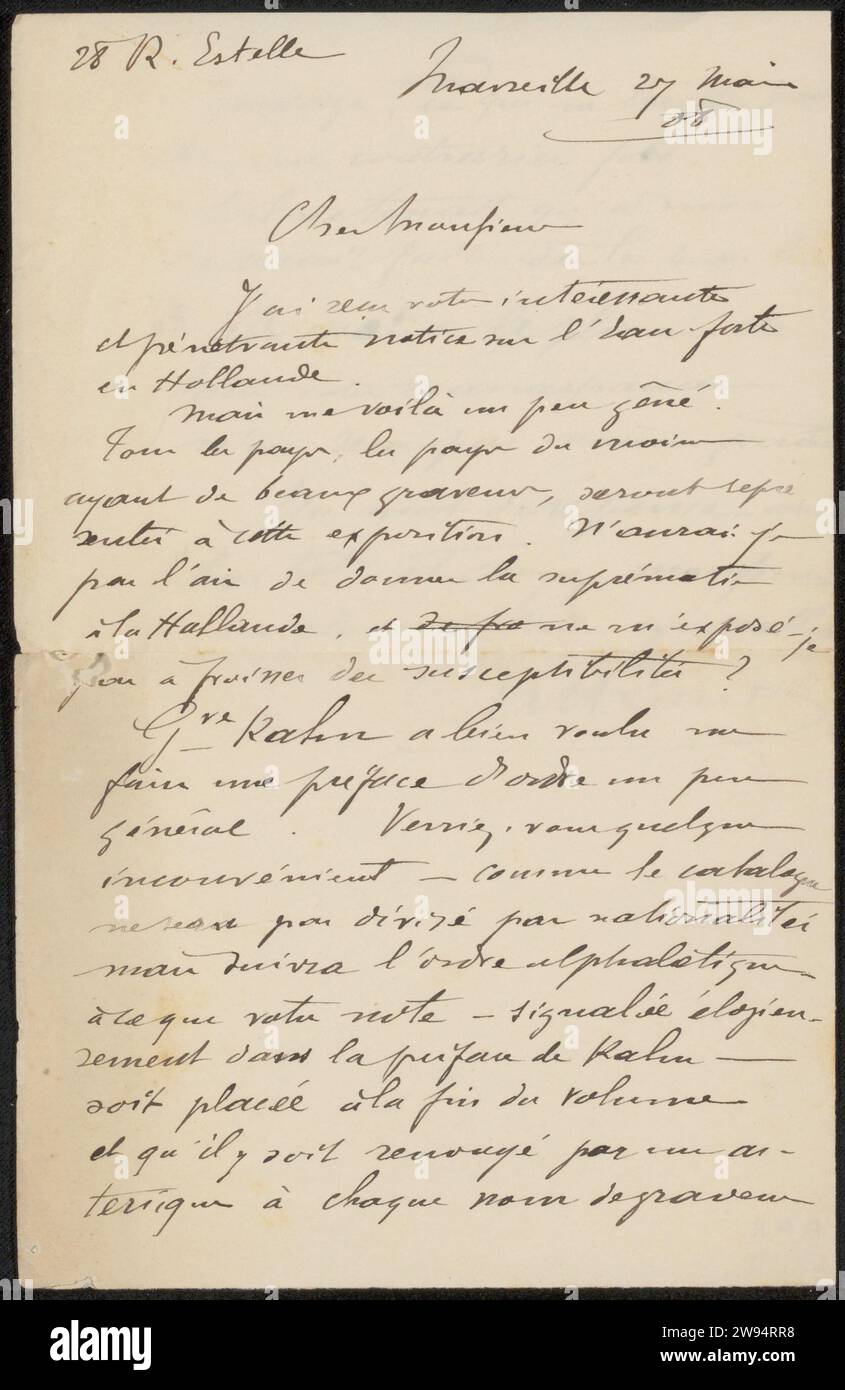 28 R. Estelle
Marseille 27 Mai
08
Cher Monsieur
J'ai reçu votre intéressante
et pénétrante notice sur l'Eau forte
en Hollande.
Mais me voilà un peu gêné.
Tous les pays, les pays du moins
ayant de beaux graveurs, seront repré
sentés à cette exposition. N'aurai-je
pas l'air de donner la suprématie
à la Hollande, et ne m'exposé-je
pas à froisser des susceptibilités ?
Gve Kahn a bien voulu me
faire une préface d'ordre un peu
général. Verriez-vous quelque
inconvénient — comme le catalogue
ne sera pas divisé par nationalités
mais suivra l'ordre alphabétique —
à ce que votre note — signalée élogieu-
sement dans la préface de Kahn —
soit placée à la fin du volume
et qu'il y soit renvoyé par un as-
térisque à chaque nom de graveur
alamy
a
alamy
2W94RR8